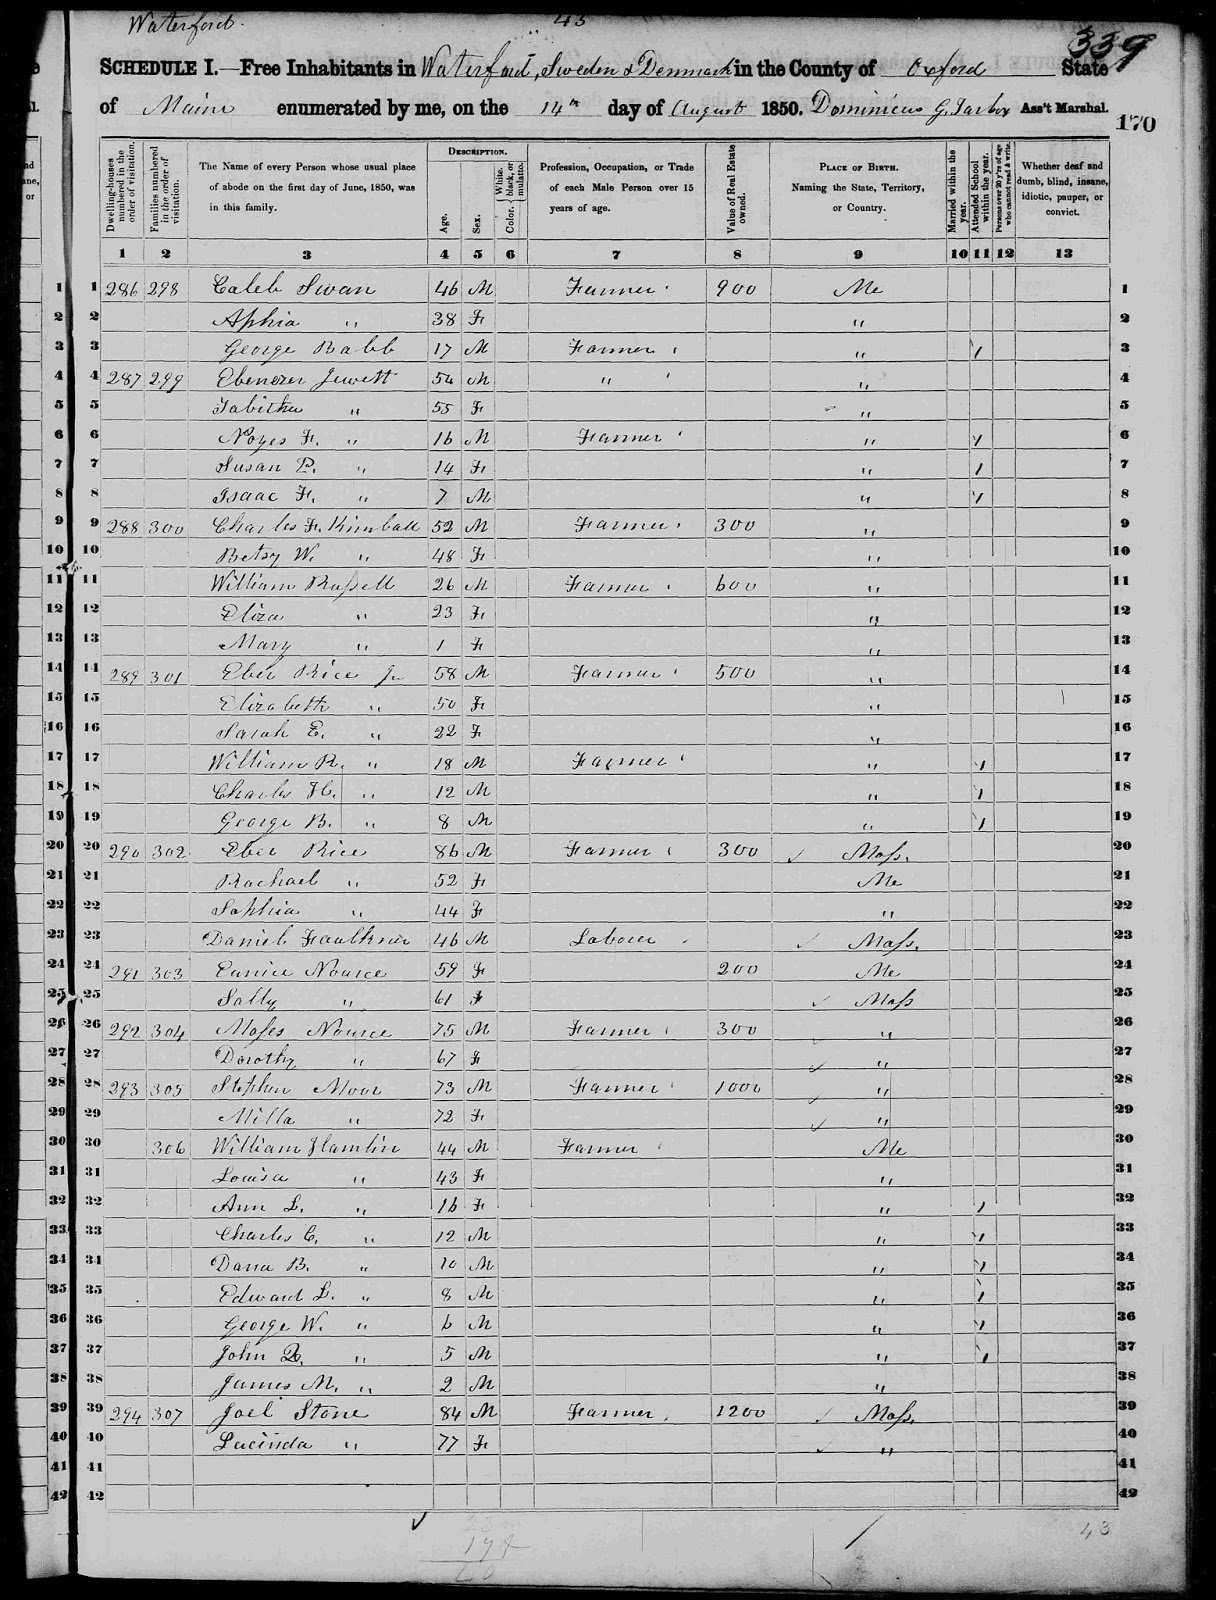 Waterford.
45
339
SCHEDULE I.—Free Inhabitants in Waterford, Sweden & Denmark in the County of Oxford State
of Maine enumerated by me, on the 14th day of August 1850. Dominicus G. Tarbox Ass't Marshal.
170
Dwelling-houses numbered in the order of visitation.
Families numbered in the order of visitation.
The Name of every Person whose usual place of abode on the first day of June, 1850, was in this family.
DESCRIPTION.
Age.
Sex.
Color. { White, black, or mulatto.
Profession, Occupation, or Trade of each Male Person over 15 years of age.
Value of Real Estate owned.
PLACE OF BIRTH. Naming the State, Territory, or Country.
Married within the year.
Attended School within the year.
Persons over 20 y'rs of age who cannot read & write.
Whether deaf and dumb, blind, insane, idiotic, pauper, or convict.
1 2 3 4 5 6 7 8 9 10 11 12 13
1 1 286 298 Caleb Swan 46 M Farmer 900 Me 1
2 2 Aphia " 38 F " 2
3 3 George Babb 17 M Farmer " / 3
4 4 287 299 Ebenezer Jewett 54 M " " 4
5 5 Tabitha " 55 F " 5
6 6 Noyes F. " 16 M Farmer " / 6
7 7 Susan P. " 14 F " / 7
8 8 Isaac F. " 7 M " / 8
9 9 288 300 Charles F. Kimball 52 M Farmer 300 " 9
10 10 Betsy W. " 48 F " 10
11 11 William Russell 26 M Farmer 600 " 11
12 12 Eliza " 23 F " 12
13 13 Mary " 1 F " 13
14 14 289 301 Eber Rice Jr 58 M Farmer 500 " 14
15 15 Elizabeth " 50 F " 15
16 16 Sarah E. " 22 F " 16
17 17 William R. " 18 M Farmer " / 17
18 18 Charles H. " 12 M " / 18
19 19 George B. " 8 M " / 19
20 20 290 302 Eber Rice 86 M Farmer 300 ✓ Mass. 20
21 21 Rachael " 52 F Me 21
22 22 Sophia " 44 F " 22
23 23 Daniel Faulkner 46 M Laborer ✓ Mass. 23
24 24 291 303 Eunice Nource 59 F 200 Me 24
25 25 Sally " 61 F ✓ Mass 25
26 26 292 304 Moses Nource 75 M Farmer 300 ✓ " 26
27 27 Dorothy " 67 F ✓ " 27
28 28 293 305 Stephen Moor 73 M Farmer 1000 ✓ " 28
29 29 Milla " 72 F ✓ " 29
30 30 306 William Hamlin 44 M Farmer Me 30
31 31 Louisa " 43 F " 31
32 32 Ann L. " 16 F " / 32
33 33 Charles C. " 12 M " / 33
34 34 Dana B. " 10 M " / 34
35 35 Edward L. " 8 M " / 35
36 36 George W. " 6 M " / 36
37 37 John " 5 M " / 37
38 38 James M. " 2 M " 38
39 39 294 307 Joel Stone 84 M Farmer 1200 ✓ Mass. 39
40 40 Lucinda " 77 F ✓ " 40
41 41 41
42 42 42
43